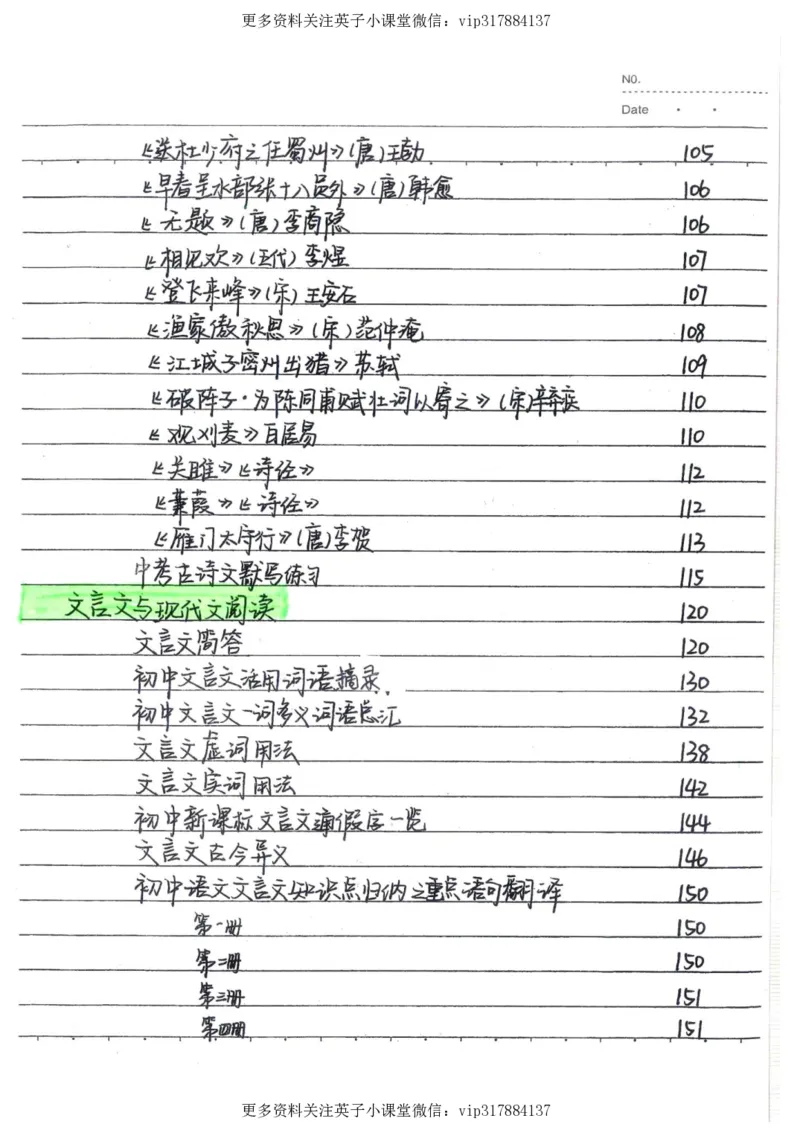 更多资料关注英子小课堂微信：vip317884137
NO.
Date
《送杜少府之任蜀州》(唐)王勃 105
《早春呈水部张十八员外》(唐)韩愈 106
《无题》(唐)李商隐 106
《相见欢》(五代)李煜 107
《登飞来峰》(宋)王安石 107
《渔家傲秋思》(宋)范仲淹 108
《江城子密州出猎》苏轼 109
《破阵子·为陈同甫赋壮词以寄之》(宋)辛弃疾 110
《观刈麦》白居易 110
《关雎》《诗经》 112
《蒹葭》《诗经》 112
《雁门太守行》(唐)李贺 113
中考古诗文默写练习 115
文言文与现代文阅读 120
文言文简答 120
初中文言文活用词语摘录. 130
初中文言文一词多义词语总汇 132
文言文虚词用法 138
文言文实词用法 142
初中新课标文言文通假字一览 144
文言文古今异义 146
初中语文文言文知识点归纳之重点语句翻译 150
第一册 150
第二册 150
第三册 151
第四册 151
更多资料关注英子小课堂微信：vip317884137